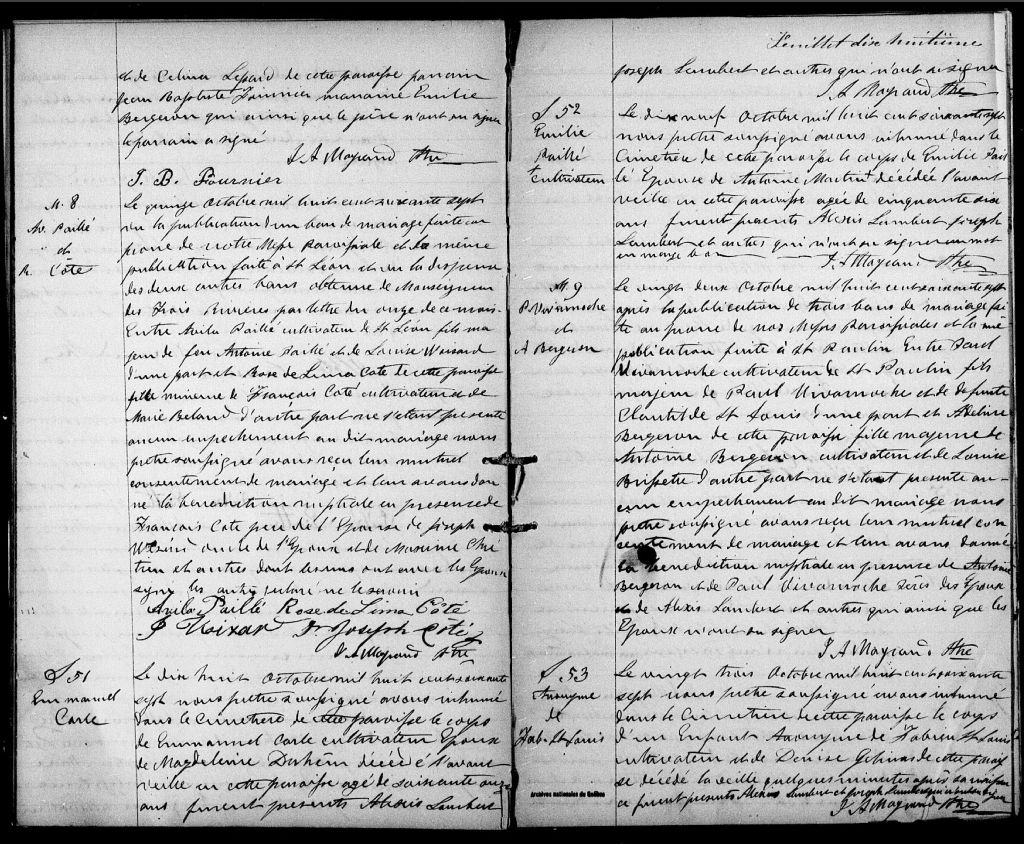 et de Celina Lepard de cette paroisse parrain
Jean Baptiste Fournier marraine Emilie
Bergeron qui ainsi que le père n'ont su signer
le parrain a signé
J A Mayrand Ptre
J. B. Fournier
M. 8
Av. Paillé
et
R. Côté
Le quinze Octobre mil huit cent soixante sept
vu la publication d'un ban de mariage faite au
prone de notre Messe Paroissiale et de la même
publication faite à St Léon et vu la dispense
des deux autres bans obtenue de Monseigneur
des Trois Rivières par lettre du onze de ce mois
Entre Avila Paillé cultivateur de St Léon fils ma
jeur de feu Antoine Paillé et de Louise Voisard
d'une part et Rose de Lima Coté de cette paroisse
fille mineure de François Coté cultivateur et de
Marie Beland d'autre part ne s'étant presenté
aucun empechement au dit mariage nous
prêtre soussigné avons reçu leur mutuel
consentement de mariage et leur avons don
né la bénédiction nuptiale en presence de
François Coté père de l'Epouse de Joseph
oncle de l'Epoux et de Maxime Chré
tien et autres dont les uns ont avec les Epoux
signé les autres ne le savoir
Avila Paillé Rose de Lima Côté
Joseph Côté
J A Mayrand Ptre
S. 51
Emmanuel
Carle
Le dix huit Octobre mil huit cent soixante
sept nous prêtre soussigné avons inhumé
dans le Cimetière de cette paroisse le corps
de Emmanuel Carle cultivateur Epoux
de Magdeleine decédé l'avant
veille en cette paroisse agé de soixante onze
ans furent presents Alexis Lambert
Feuillet dix huitième
Joseph Lambert et autres qui n'ont su signer
J A Mayrand Ptre
S 52
Emilie
Paillé
Cultivateur
Le dix neuf Octobre mil huit cent soixante sept
nous prêtre soussigné avons inhumé dans le
Cimetière de cette paroisse le corps de Emilie Pail
lé Epouse de Antoine décédée l'avant
veille en cette paroisse agée de cinquante six
ans furent presents Alexis Lambert Joseph
Lambert et autres qui n'ont su signer un mot
en marge bon
J A Mayrand Ptre
M. 9
P. Vivamoche
et
A Bergeron
Le vingt deux Octobre mil huit cent soixante sept
après la publication de trois bans de mariage fai
te au prone de nos Messes Paroissiales et la me
publication faite à St Paulin Entre Paul
Vivamoche cultivateur de St Paulin fils
majeur de Paul Vivamoche et de defunte
Clautil de St Louis d'une part et Adeline
Bergeron de cette paroisse fille majeure de
Antoine Bergeron cultivateur et de Louise
Brissette d'autre part ne s'étant presenté au-
cun empechement au dit mariage nous
prêtre soussigné avons reçu leur mutuel con
sentement de mariage et leur avons donné
la bénédiction nuptiale en presence de Antoine
Bergeron et de Paul Vivamoche pères des Epoux
et de Alexis Lambert et autres qui ainsi que les
Epoux n'ont su signer
J A Mayrand Ptre
S. 53
Anonyme
de
Fab. St Louis
Le vingt trois Octobre mil huit cent soixante
sept nous prêtre soussigné avons inhumé
dans le Cimetière de cette paroisse le corps
d'un Enfant Anonyme de Fabien St Louis
cultivateur et de Denise Gelinas de cette parois
se décédé la veille quelques minutes après sa naissan
ce furent presents Alexis Lambert et Joseph Lambert qui n'ont su signer
J A Mayrand Ptre
Archives nationales du Québec